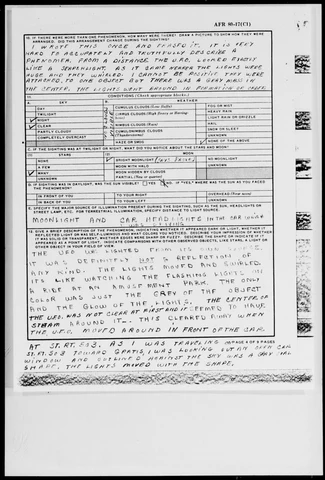 AFR 80-17(C1)
10. IF THERE WERE MORE THAN ONE PHENOMENON, HOW MANY WERE THERE? DRAW A PICTURE TO SHOW HOW THEY WERE ARRANGED. DID THIS ARRANGEMENT CHANGE DURING THE SIGHTING?
I WROTE THIS ONCE AND ERASED IT. IT IS VERY
HARD TO ACCURATELY AND TRUTHFULLY DESCRIBE A
PHENOMENA, FROM A DISTANCE THE U.F.O. LOOKED EXACTLY
LIKE A SPOTLIGHT. AS IT CAME NEARER THE LIGHTS WERE
HUGE AND THEY WHIRLED. I CANNOT BE POSITIVE THEY WERE
ATTACHED, TO ONE OBJECT BUT THERE WAS A GREY MASS IN
THE CENTER, THE LIGHTS WENT AROUND IN FORMATION OR ORDER
CONDITIONS (Check appropriate blocks)
A. SKY
B. WEATHER
DAY
CUMULUS CLOUDS (Low Fluffy)
FOG OR MIST
TWILIGHT
CIRRUS CLOUDS (High Fleecy or Herring-bone)
HEAVY RAIN
NIGHT
LIGHT RAIN OR DRIZZLE
CLEAR
NIMBUS CLOUDS (Rain)
HAIL
PARTLY CLOUDY
CUMULONIMBUS CLOUDS (Thunderstorms)
SNOW OR SLEET
COMPLETELY OVERCAST
HAZE OR SMOG
NONE OF THE ABOVE
C. IF THE SIGHTING WAS AT TWILIGHT OR NIGHT, WHAT DID YOU NOTICE ABOUT THE STARS AND MOON?
(1) STARS
(2) MOON
NONE
BRIGHT MOONLIGHT
NO MOONLIGHT
A FEW
MOON WITH HALO
UNKNOWN
MANY
MOON HIDDEN BY CLOUDS
UNKNOWN
PARTIAL (New or quarter)
D. IF SIGHTING WAS IN DAYLIGHT, WAS THE SUN VISIBLE? YES NO. IF "YES," WHERE WAS THE SUN AS YOU FACED THE PHENOMENON?
IN FRONT OF YOU
TO YOUR RIGHT
OVERHEAD (Near noon)
IN BACK OF YOU
TO YOUR LEFT
UNKNOWN
E. SPECIFY THE MAJOR SOURCE OF ILLUMINATION PRESENT DURING THE SIGHTING, SUCH AS SUN, HEADLIGHTS OR STREET LAMP, ETC. FOR TERRESTRIAL ILLUMINATION, SPECIFY DISTANCE TO LIGHT SOURCE.
MOONLIGHT AND CAR HEADLIGHTS
12. GIVE A BRIEF DESCRIPTION OF THE PHENOMENON, INDICATING WHETHER IT APPEARED DARK OR LIGHT, WHETHER IT REFLECTED LIGHT OR WAS SELF-LUMINOUS AND WHAT COLORS YOU NOTICED. DESCRIBE YOUR IMPRESSION OF WHETHER IT WAS SOLID OR TRANSPARENT, WHETHER EDGES WERE SHARP OR FUZZY. DESCRIBE THE SHAPE OR INDICATE IF IT APPEARED AS A POINT OF LIGHT. INDICATE COMPARISONS WITH OTHER OBSERVED OBJECTS, LIKE STARS, A LIGHT OR OTHER OBJECT IN YOUR FIELD OF VIEW.
THE UFO WE LIGHTED FROM ITS SOURCE.
IT WAS DEFINITELY NOT A REFLECTION OF
ANY KIND. THE LIGHTS MOVED AND SWIRLED.
ITS LIKE WATCHING THE FLASHING LIGHTS ON
A RIDE AT AN AMUSEMENT PARK. THE ONLY
COLOR WAS JUST THE GREY OF THE OBJECT
AND THE GLOW OF THE LIGHTS. THE CENTER, OF
THE U.F.O. WAS NOT CLEAR AT FIRST AND IT SEEMED TO HAVE
STREAM AROUND IT. THIS CLEARED AWAY WHEN
THE U.F.O. MOVED AROUND IN FRONT OF THE CAR.
PAGE 4 OF 5 PAGES
AT ST. RT. 503. AS I WAS TRAVELING
ST. RT. 503 TOWARD GRATIS, I WAS LOOKING OUT AN OPEN CAR
WINDOW AND OUTLINED AGAINST THE SKY WAS A GREY OVAL
SHAPE. THE LIGHTS MOVED WITH THE SHAPE.